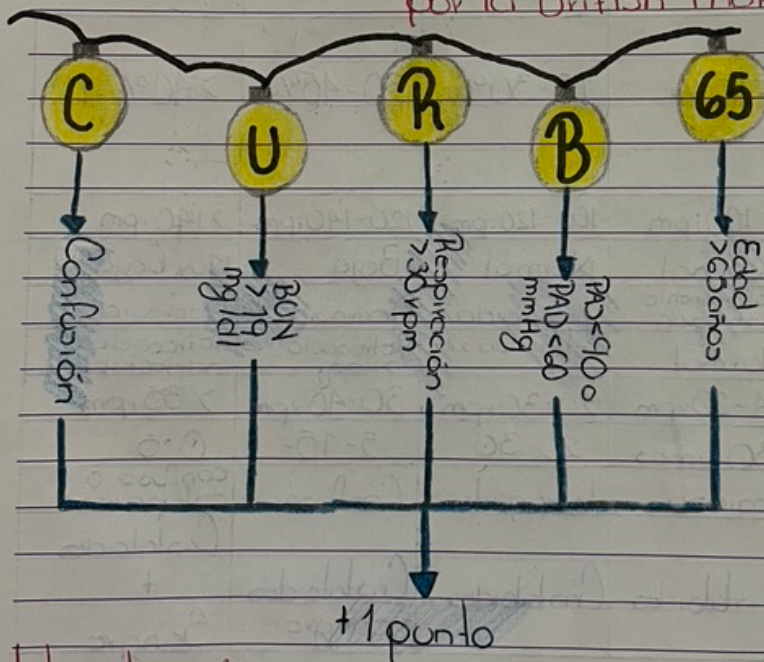 por la British
C
U
R
B
65
Confusión
BUN
>19
mg/dl
Respiración
>30rpm
PAS<90 o
PAD<60
mmHg
Edad
>65años
+1 punto